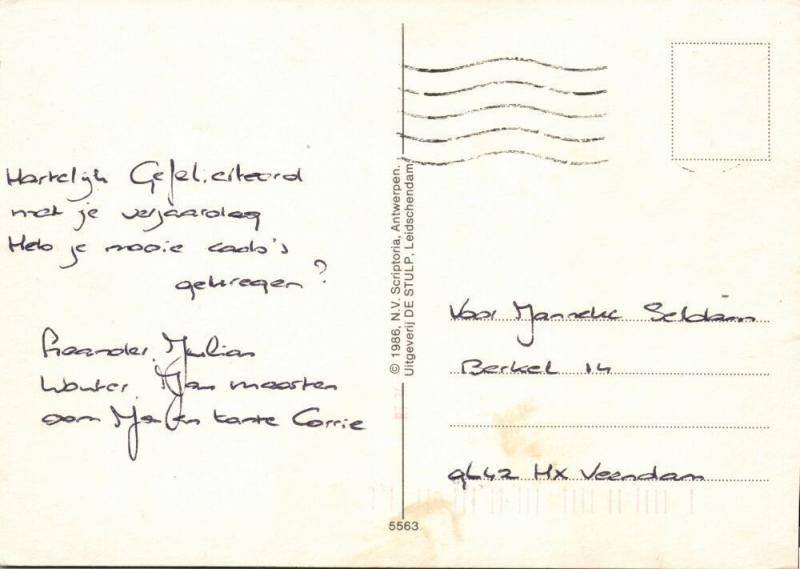 Hartelijk Gefeliciteerd
met je verjaardag
Heb je mooie cado's
gekregen?
Julian
Wouter, Jan maarten
oom Jan en tante Corrie
© 1986, N.V. Scriptoria, Antwerpen.
Uitgeverij DE STULP, Leidschendam
5563
Voor Janneke Seldam
Berkel 14
9642 HX Veendam